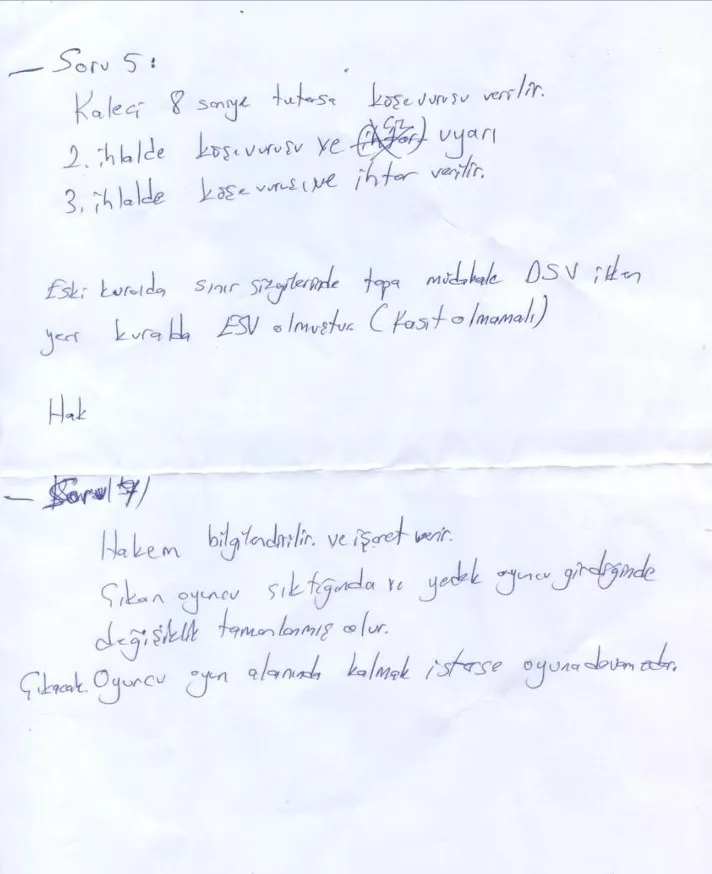 — Soru 5:
Kaleci 8 saniye tutarsa köşe vuruşu verilir.
2. ihlalde köşe vuruşu ve uyarı
3. ihlalde köşe vuruşu ve ihtar verilir.
Eski kuralda sınır çizgilerinde topa müdahale DSV iken
yeni kuralda ESV olmuştur (Kasıt olmamalı)
Hak
— Soru 7)
Hakem bilgilendirilir. ve işaret verir.
Çıkan oyuncu çıktığında ve yedek oyuncu girdiğinde
değişiklik tamamlanmış olur.
Çıkacak Oyuncu oyun alanında kalmak isterse oyuna devam eder.